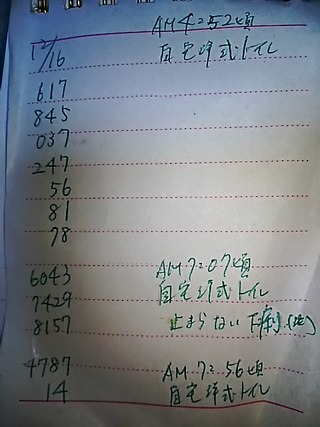 AM4:52頃
12/16 自宅洋式トイレ
617
845
037
247
56
81
78
6043 AM7:07頃
7429 自宅洋式トイレ
8157 止まらない下痢
4787 AM7:56頃
14 自宅洋式トイレ